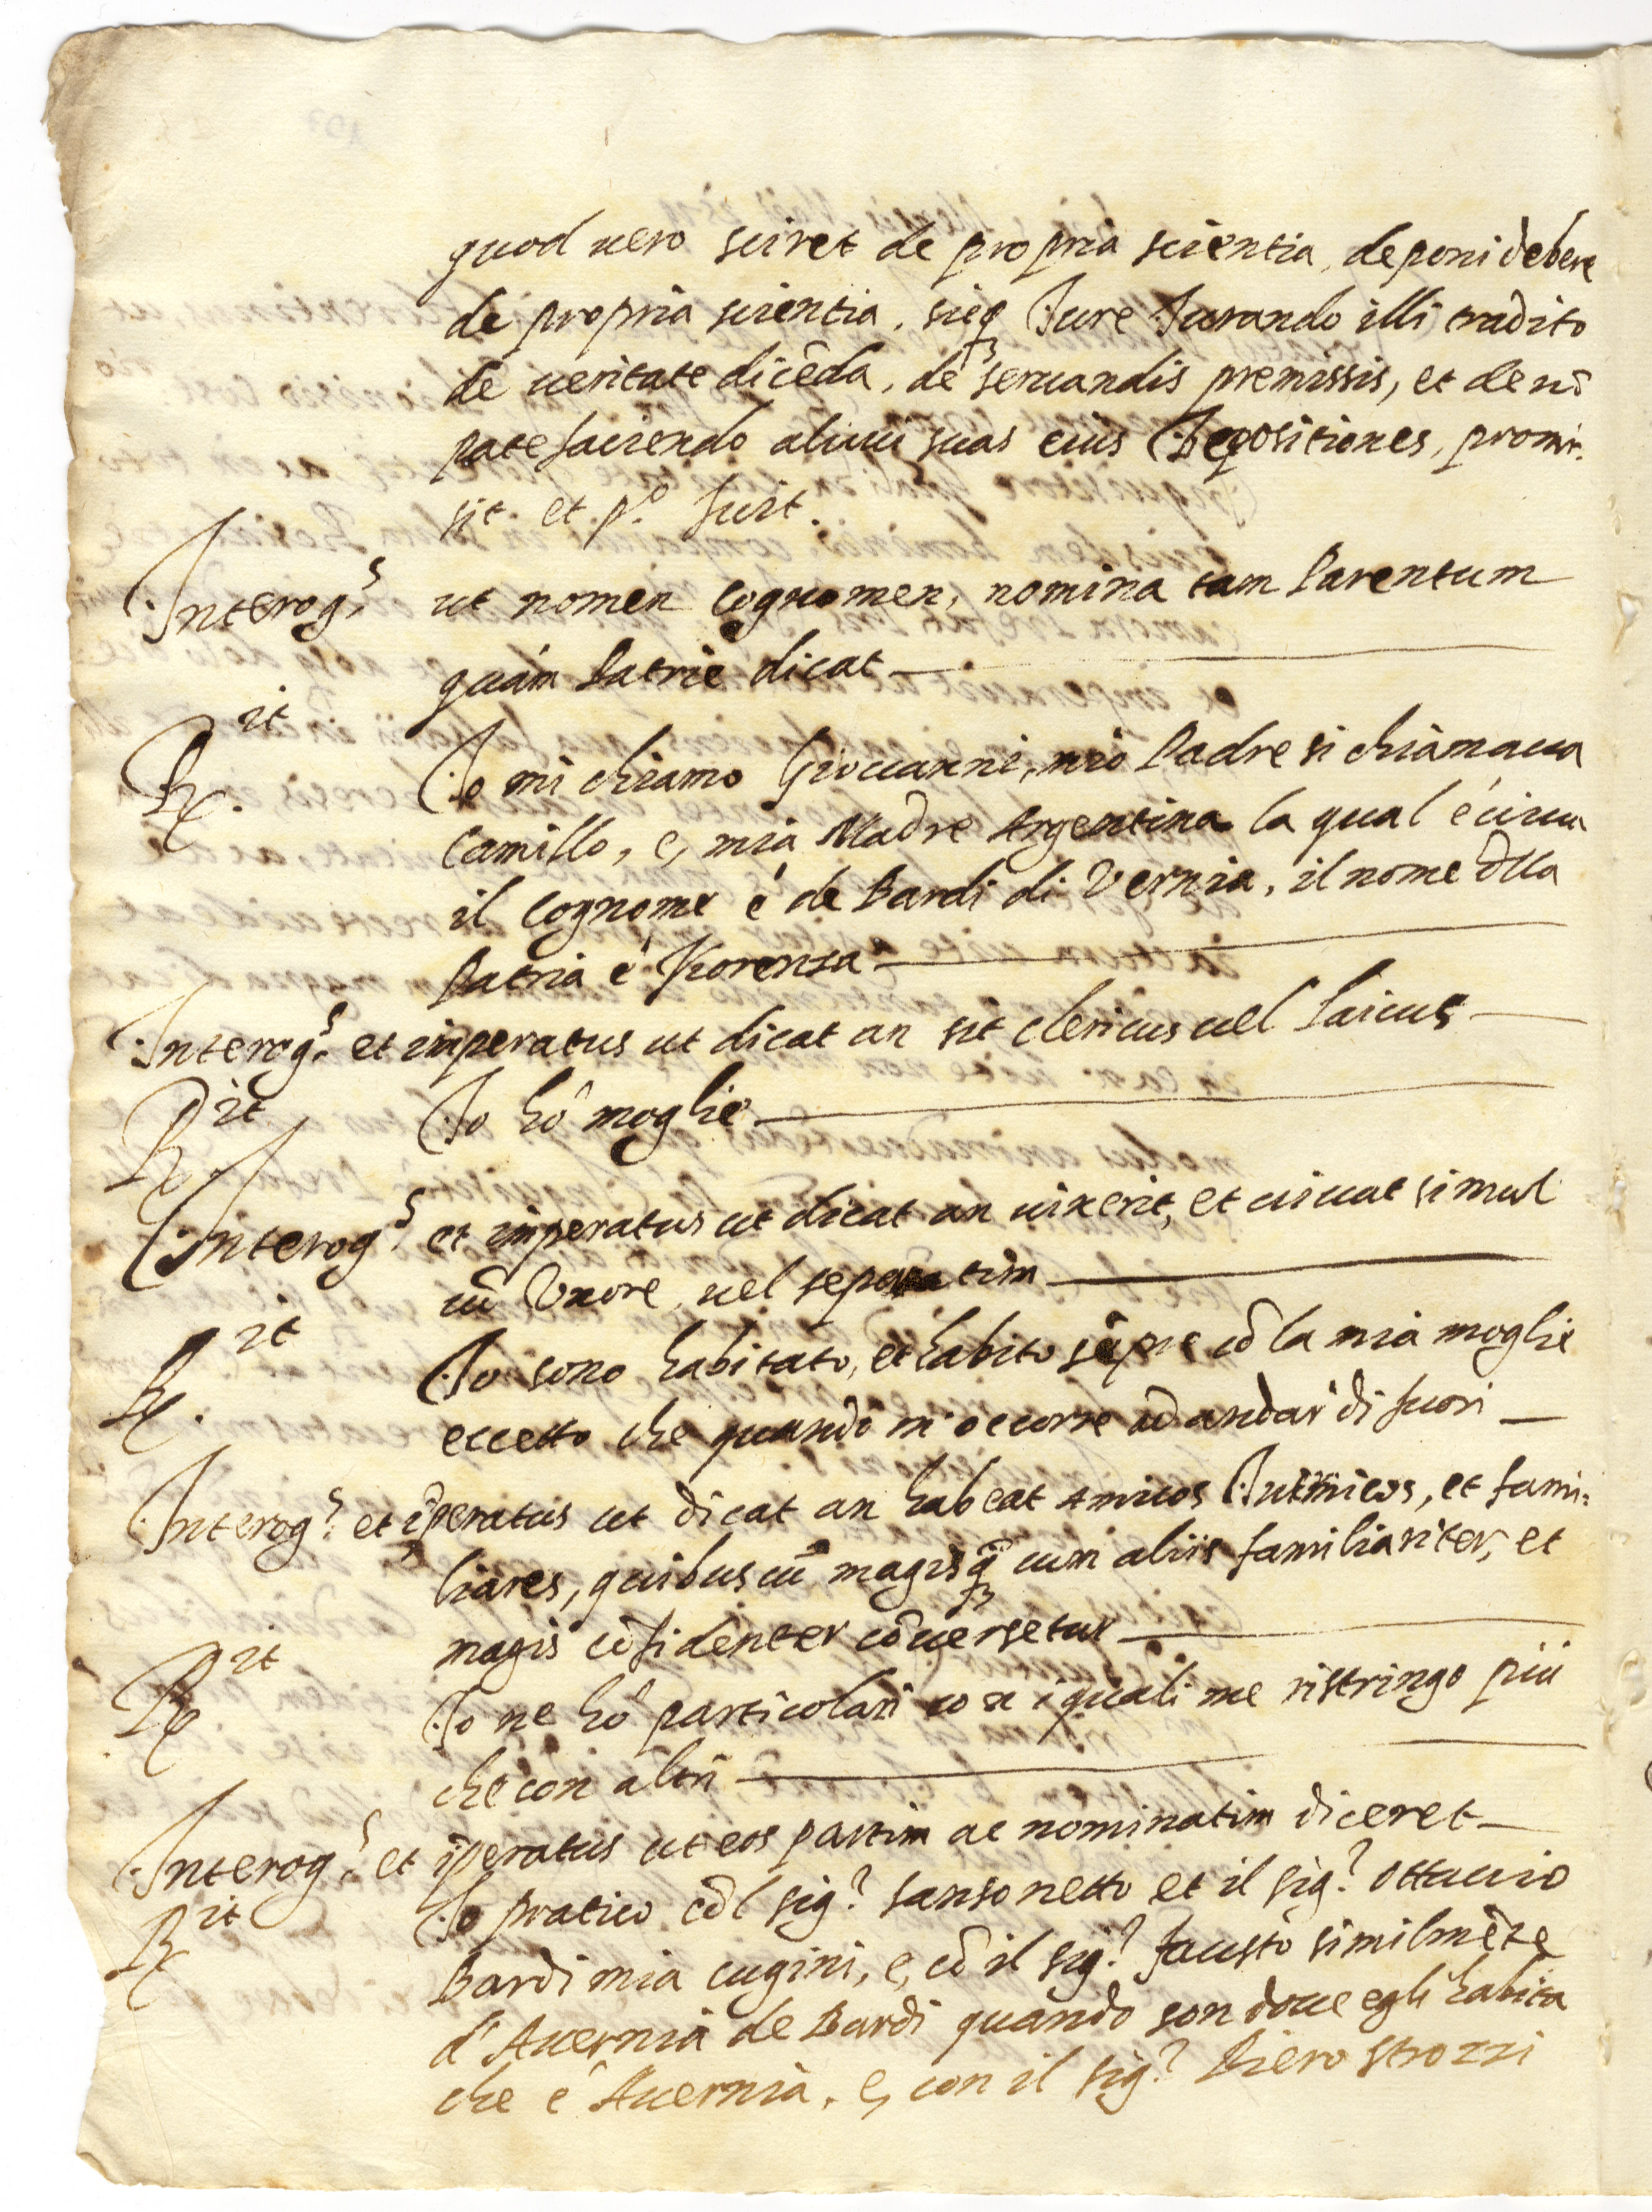 quod uero sciret de propria scientia, deponi debere
de propria scientia, sicq3 Jure Jurando illi tradito
de ueritate dicẽda, de seruandis premissis, et de nõ
patefaciendo alicui suas eius Depositiones, promi-
sit et p.º fuit.
Interog.s ut nomen cognomen, nomina tam Parentum
quàm Patrie dicat
R.it Jo mi chiamo Giouanni, mio Padre si chiamaua
Camillo, e, mia Madre Argentina la qual è uiua
il cognome è de Bardi di Vernia, il nome dlla
Patria è Fiorenza
Interog.s et imperatus ut dicat an sit clericus uel laicus
R.it Jo hò moglie
Interog.s et imperatus ut dicat an uixerit, et uiuat simul
cũ Vxore, uel separatim
R.it Jo sono habitato, et habito sẽpre cõ la mia moglie
eccetto che quando m'occorre ad andar di fuori
Interog.s et ĩperatus ut dicat an habeat Amicos Inimicos, et fami-
liares, quibus cũ magis q̃3 cum aliis familiariter, et
magis cõfidenter cõuersetur
R.it Jo ne hò particolari con i quali me ristringo più
che con altri
Interog.s et ĩperatus ut eos partim ac nominatim diceret
R.it Jo pratico cõl sig.r Sansonetto et il sig.r Ottauio
Bardi mia cugini, e, cõ il sig.r Fausto similmẽte
d'Auernia de Bardi quando son doue egli habita
che è Auernia, e, con il sig.r Piero strozzi